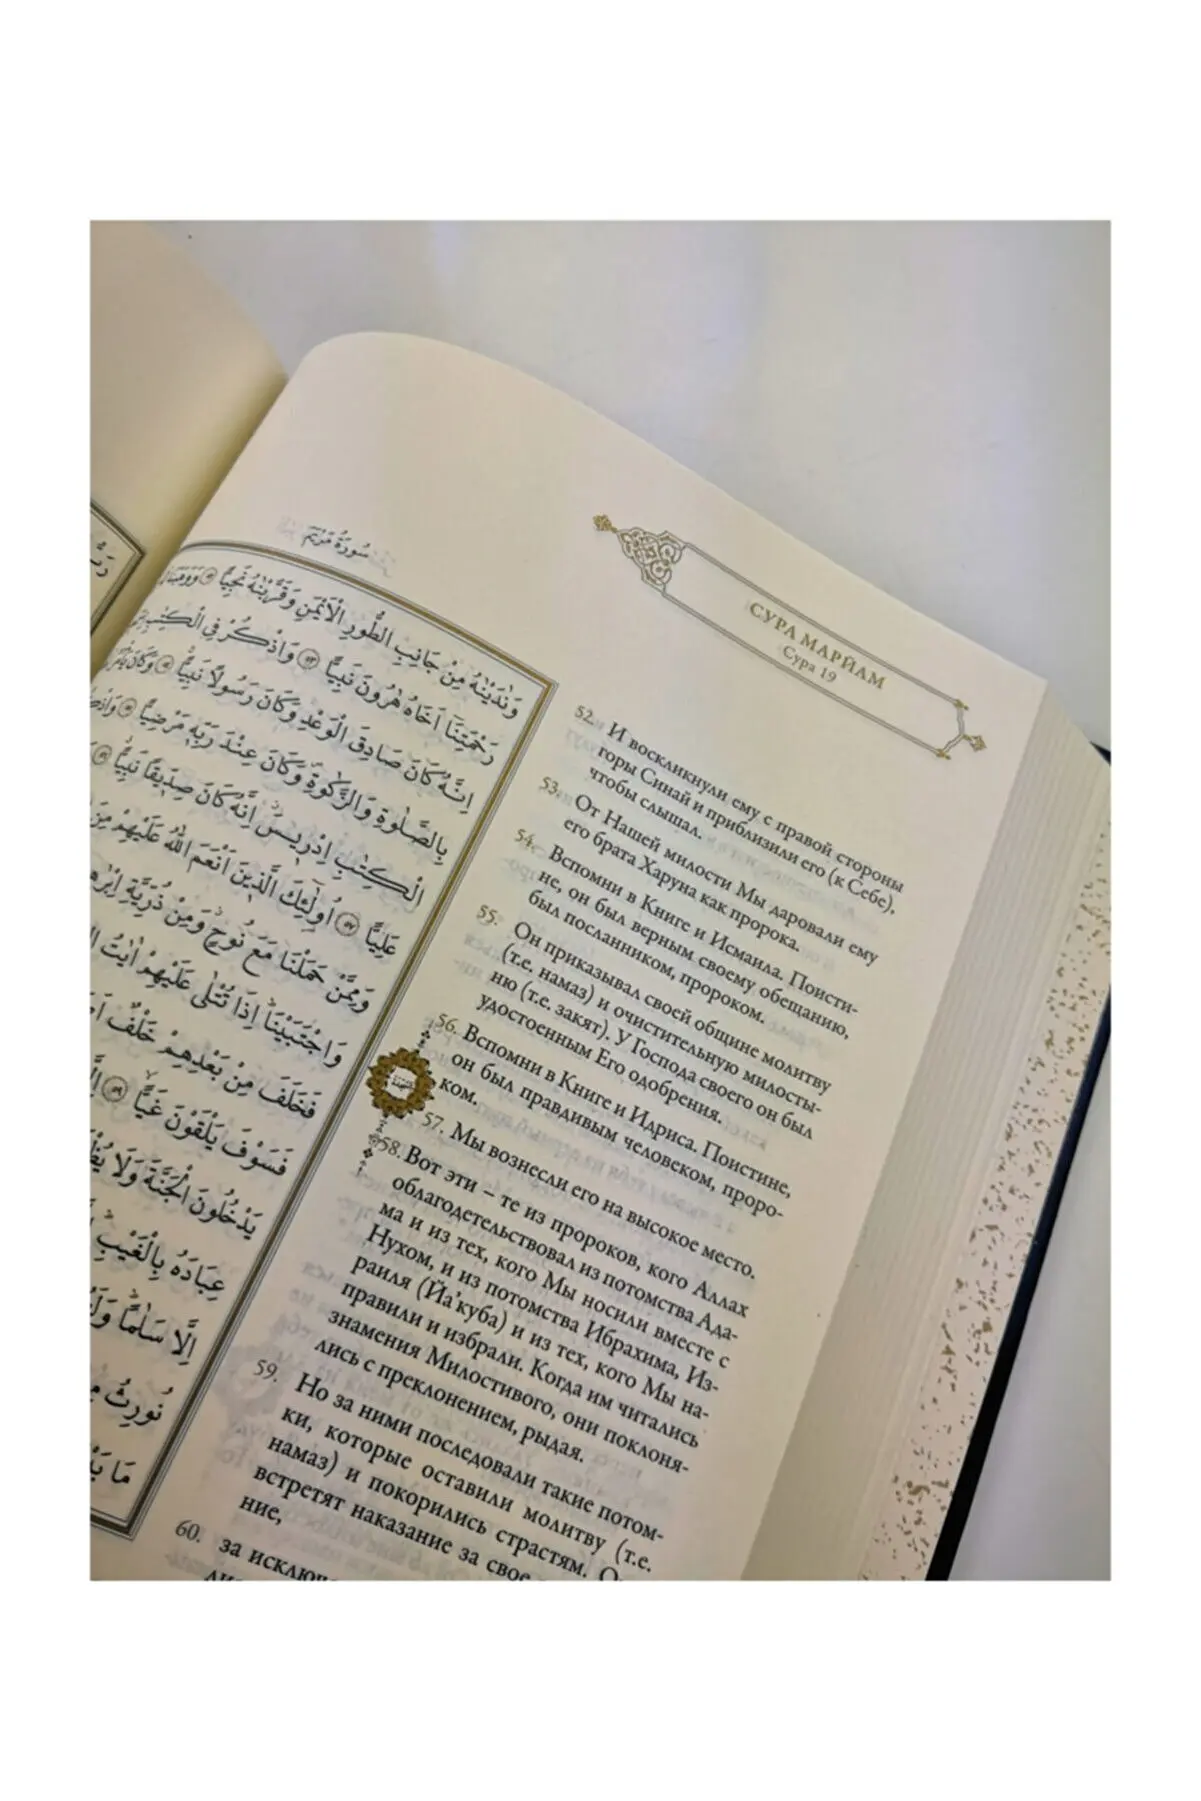 سُورَةُ مَرْيَمَ
وَنَادَيْنَاهُ مِنْ جَانِبِ الطُّورِ الْاَيْمَنِ وَقَرَّبْنَاهُ نَجِيًّا ﴿٥٢﴾ وَوَهَبْنَا
رَحْمَتِنَٓا اَخَاهُ هٰرُونَ نَبِيًّا ﴿٥٣﴾ وَاذْكُرْ فِي الْكِتَابِ
اِنَّهُ كَانَ صَادِقَ الْوَعْدِ وَكَانَ رَسُولًا نَبِيًّا ﴿٥٤﴾ وَكَانَ يَأْمُرُ
بِالصَّلٰوةِ وَالزَّكٰوةِ وَكَانَ عِنْدَ رَبِّهٖ مَرْضِيًّا ﴿٥٥﴾
الْكِتَابِ اِدْرِيسَ اِنَّهُ كَانَ صِدِّيقًا نَبِيًّا ﴿٥٦﴾
عَلِيًّا ﴿٥٧﴾ اُولٰٓئِكَ الَّذِينَ اَنْعَمَ اللّٰهُ عَلَيْهِمْ مِنَ
وَمِمَّنْ حَمَلْنَا مَعَ نُوحٍ وَمِنْ ذُرِّيَّةِ
وَاجْتَبَيْنَا اِذَا تُتْلٰى عَلَيْهِمْ اٰيَاتُ
فَخَلَفَ مِنْ بَعْدِهِمْ خَلْفٌ
فَسَوْفَ يَلْقَوْنَ غَيًّا ﴿٥٩﴾
يَدْخُلُونَ الْجَنَّةَ وَلَا
عِبَادَهُ بِالْغَيْبِ
اِلَّا سَلَامًا
نُورِثُ
مَا
СУРА МАРЙАМ
Сура 19
52. И воскликнули ему с правой стороны
горы Синай и приблизили его (к Себе),
чтобы слышал.
53. От Нашей милости Мы даровали ему
его брата Харуна как пророка.
54. Вспомни в Книге и Исмаила. Поисти-
не, он был верным своему обещанию,
был посланником, пророком.
55. Он приказывал своей общине молитву
(т.е. намаз) и очистительную милосты-
ню (т.е. закят). У Господа своего он был
удостоенным Его одобрения.
56. Вспомни в Книге и Идриса. Поистине,
он был правдивым человеком, проро-
ком.
57. Мы вознесли его на высокое место.
58. Вот эти – те из пророков, кого Аллах
облагодетельствовал из потомства Ада-
ма и из тех, кого Мы носили вместе с
Нухом, и из потомства Ибрахима, Из-
раиля (Йа'куба) и из тех, кого Мы на-
правили и избрали. Когда им читались
знамения Милостивого, они поклоня-
лись с преклонением, рыдая.
59. Но за ними последовали такие потом-
ки, которые оставили молитву (т.е.
намаз) и покорились страстям.
встретят наказание за свое
ние,
60. за